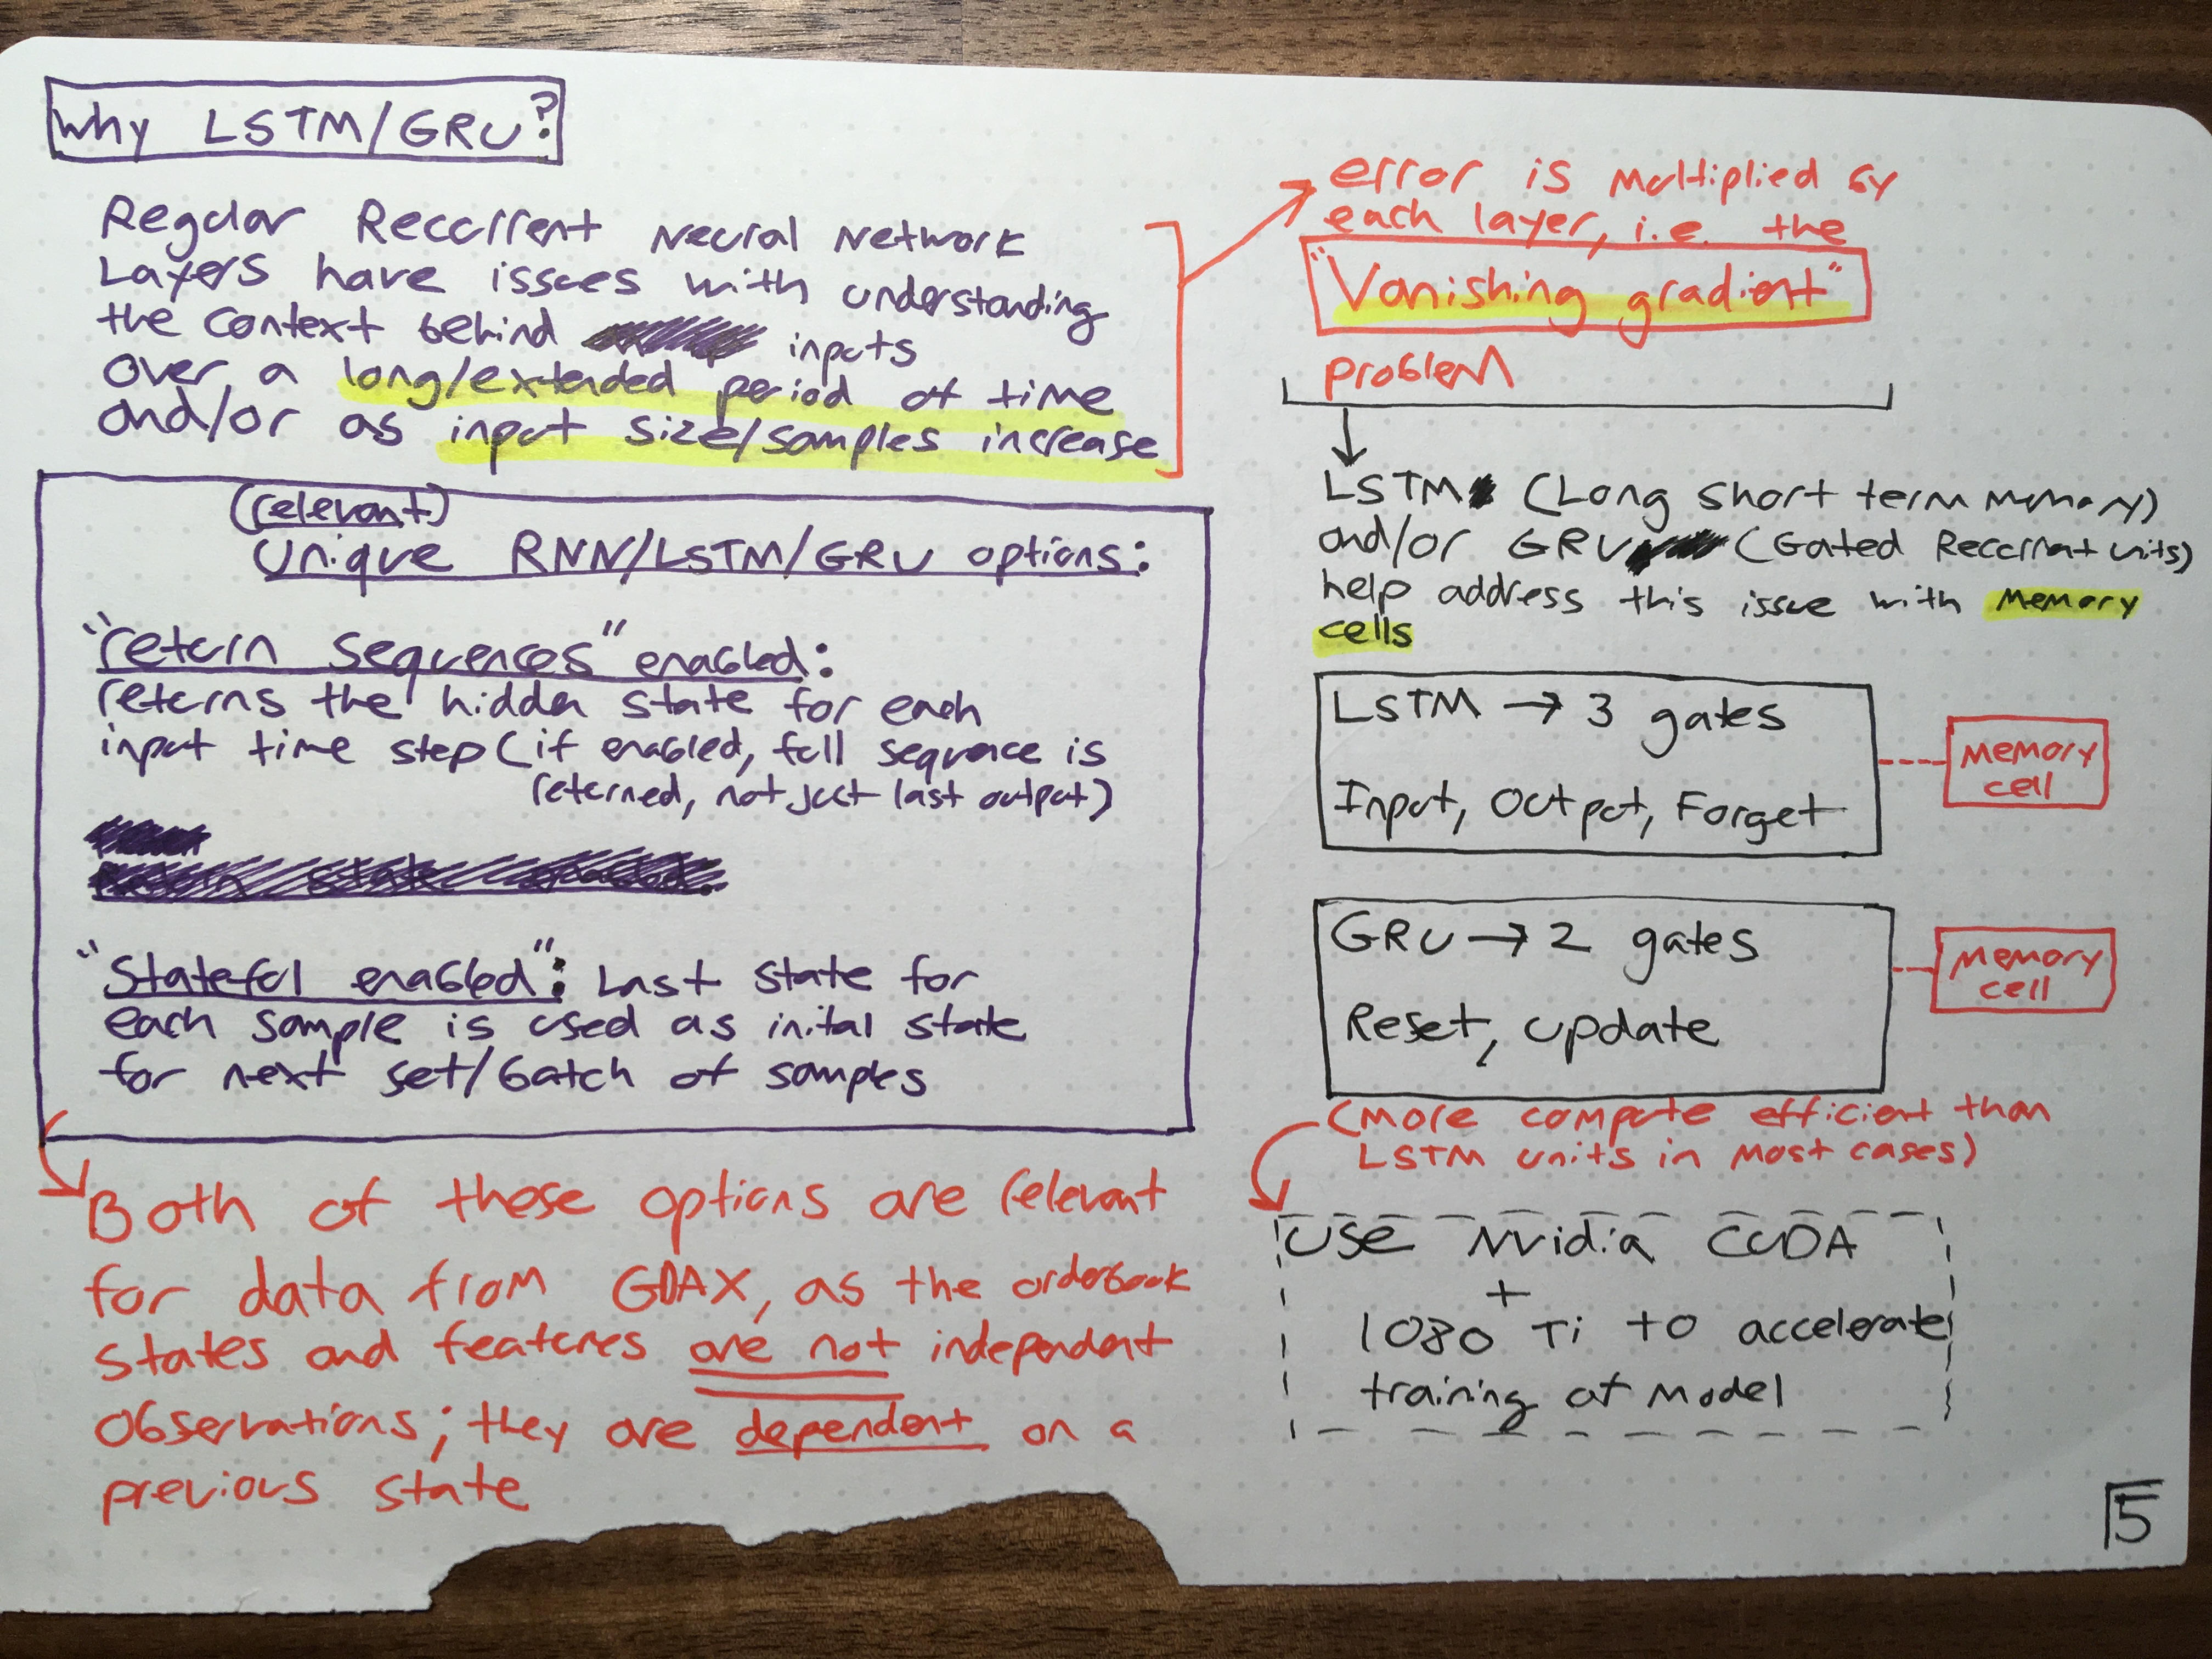 Why LSTM/GRU?
Regular Recurrent Neural Network
Layers have issues with understanding
the context behind inputs
over a long/extended period of time
and/or as input size/samples increase
(relevant)
Unique RNN/LSTM/GRU options:
"return sequences" enabled:
returns the hidden state for each
input time step (if enabled, full sequence is
returned, not just last output)
"Stateful enabled": Last state for
each sample is used as inital state
for next set/batch of samples
Both of these options are relevant
for data from GDAX, as the orderbook
states and features are not independent
observations; they are dependent on a
previous state
error is multiplied by
each layer, i.e. the
"Vanishing gradient"
problem
LSTM (Long Short term memory)
and/or GRU (Gated Recurrent units)
help address this issue with memory
cells
LSTM → 3 gates
Input, Output, Forget
memory
cell
GRU → 2 gates
Reset, update
memory
cell
(more compute efficient than
LSTM units in most cases)
Use Nvidia CUDA
+
1080 Ti to accelerate
training of model
5